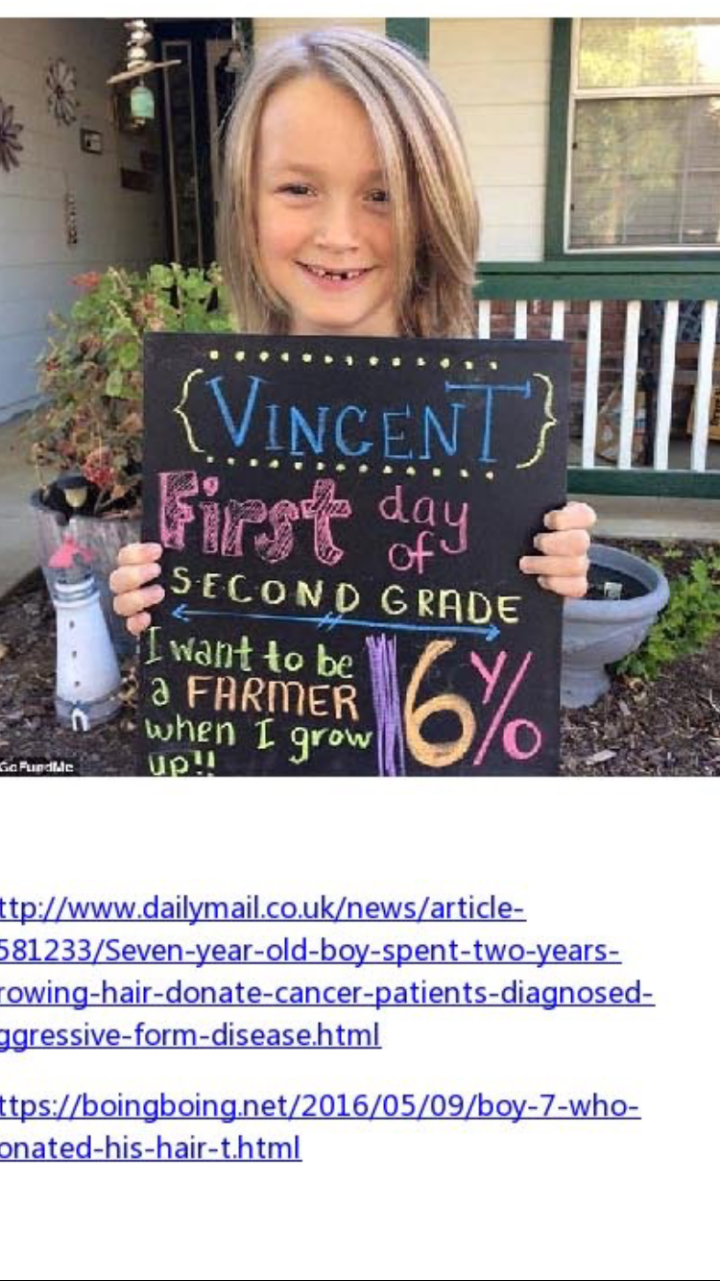 {VINCENT}
First day
of
SECOND GRADE
I want to be
a FARMER
when I grow
up!!
6 y/o
GoFundMe
ttp://www.dailymail.co.uk/news/article-
581233/Seven-year-old-boy-spent-two-years-
rowing-hair-donate-cancer-patients-diagnosed-
ggressive-form-disease.html
ttps://boingboing.net/2016/05/09/boy-7-who-
onated-his-hair-t.html